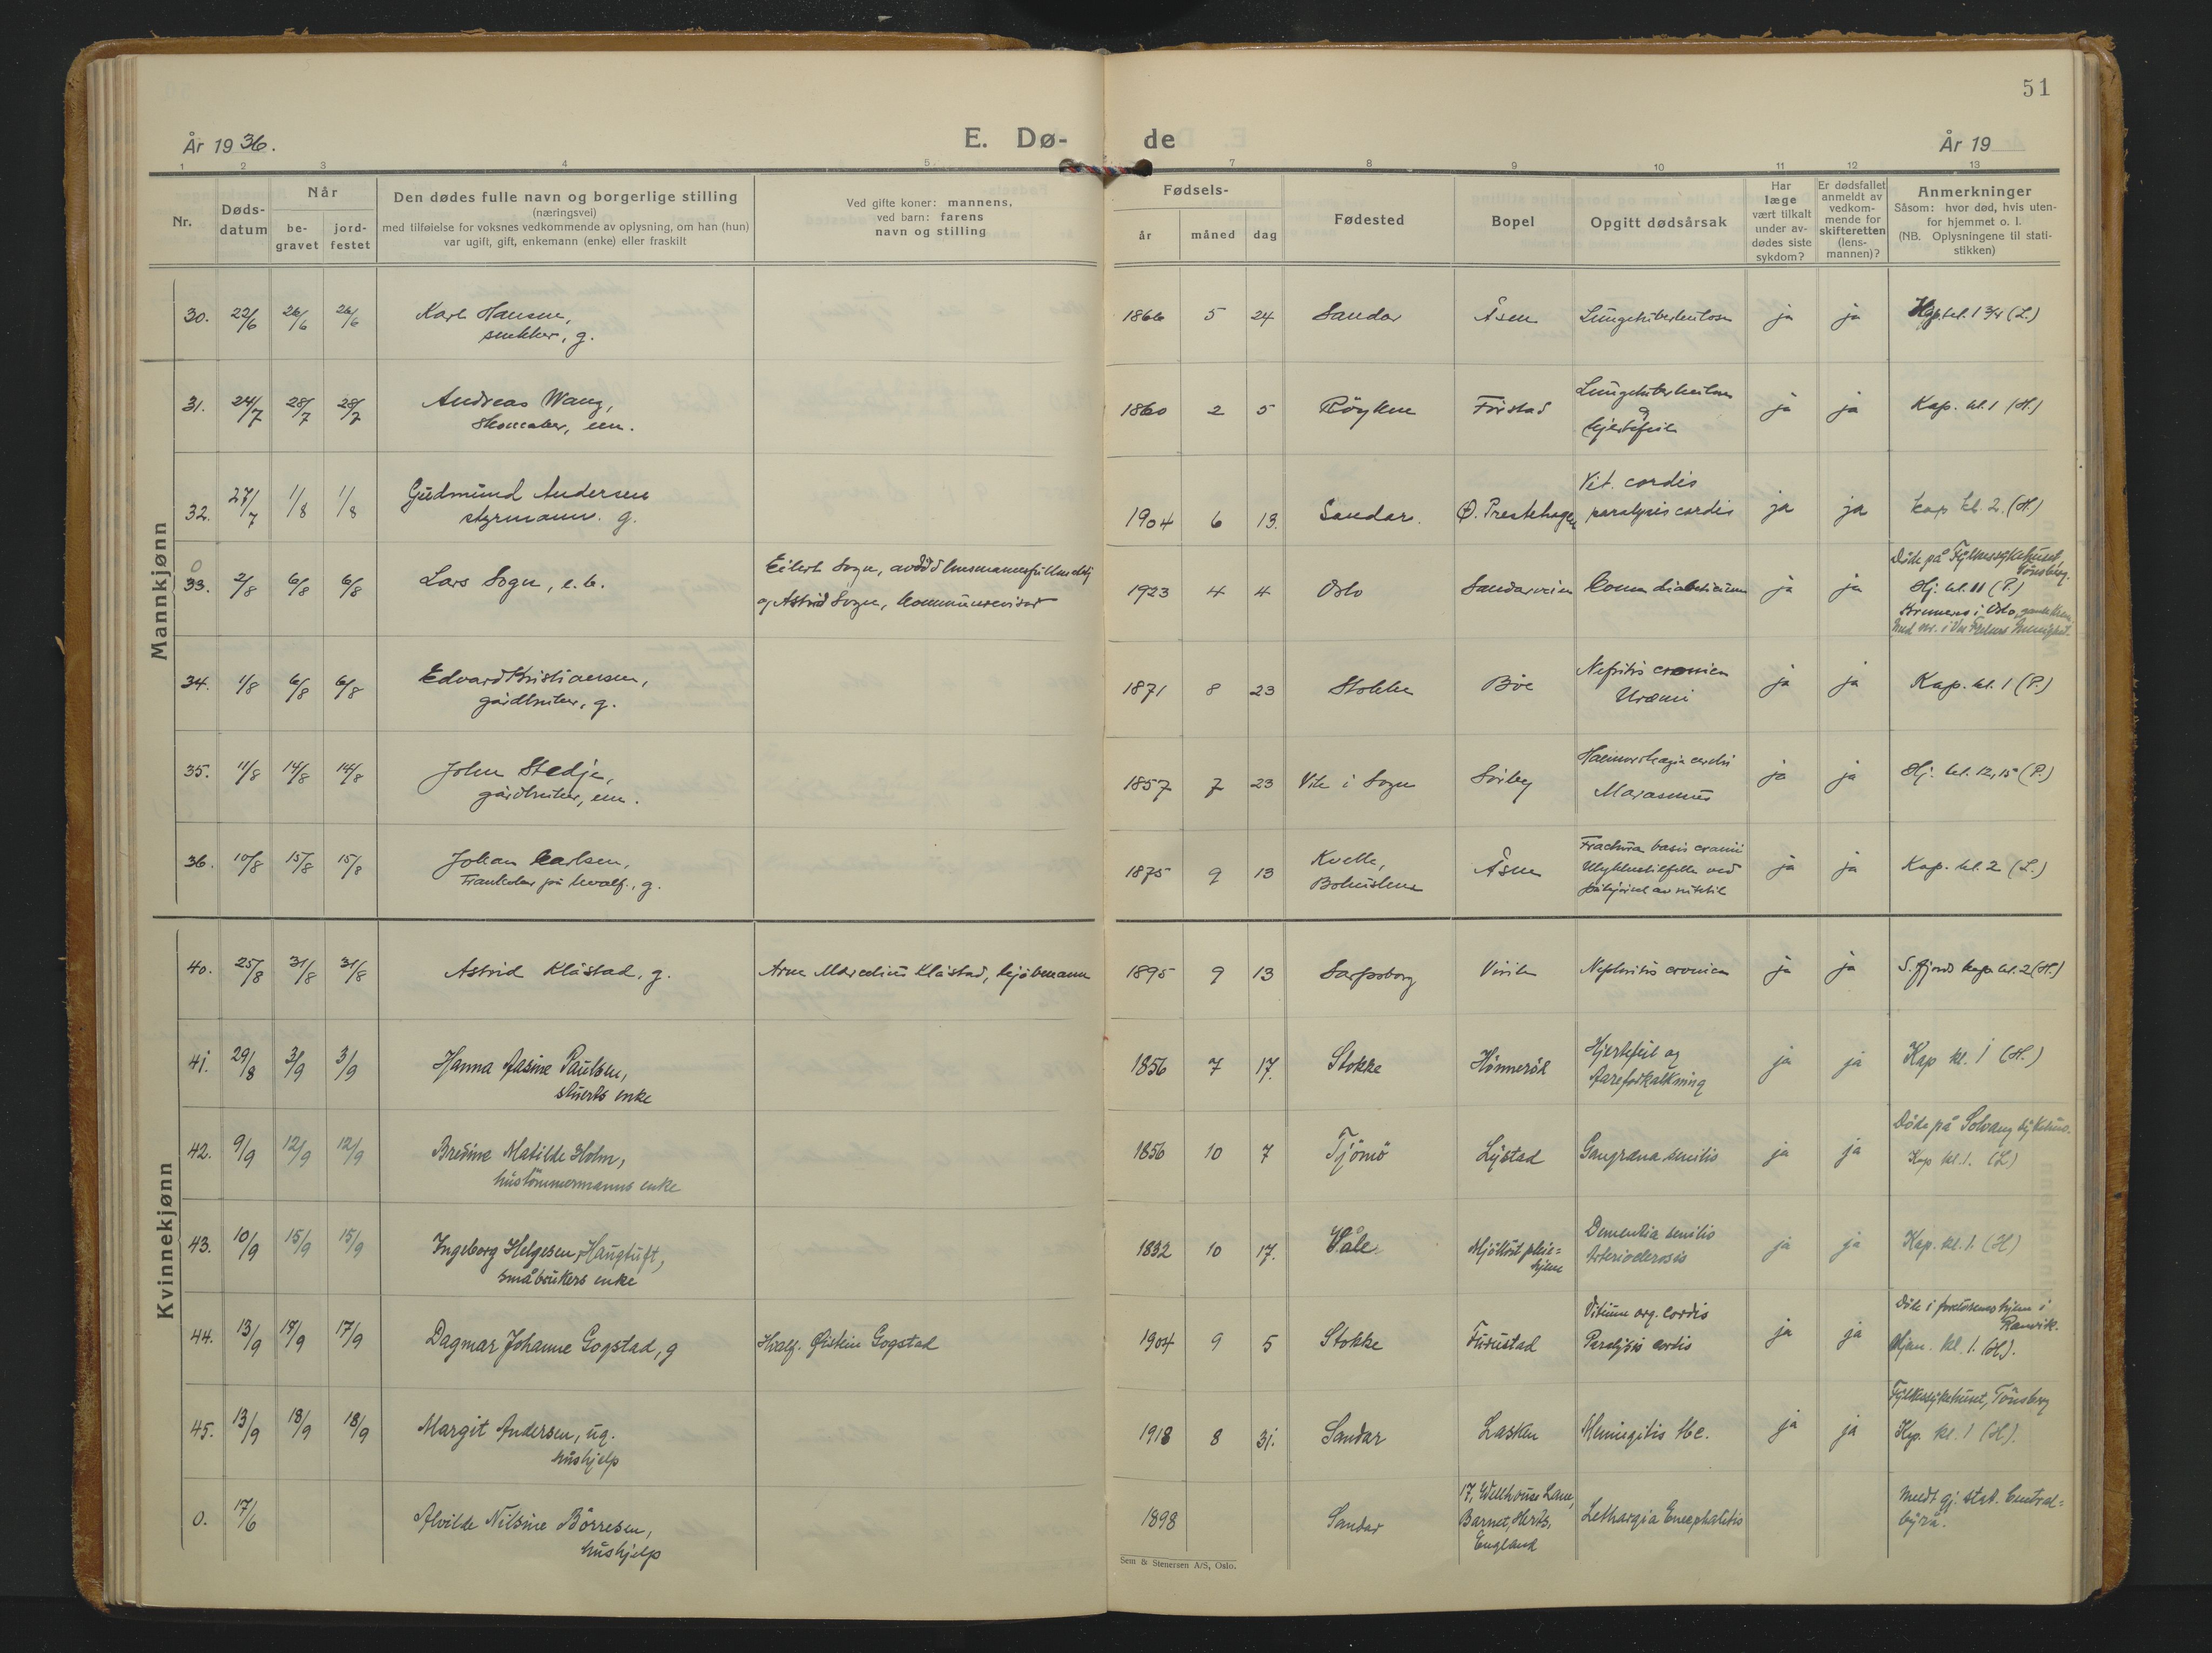 51
År 1936.
E. Dø-
de
År 19
1 2 3 4 5 7 8 9 10 11 12 13
Nr.
Døds-
datum
Når
be-
gravet
jord-
festet
Den dødes fulle navn og borgerlige stilling
(næringsvei)
med tilføielse for voksnes vedkommende av oplysning, om han (hun)
var ugift, gift, enkemann (enke) eller fraskilt
Ved gifte koner: mannens,
ved barn: farens
navn og stilling
Fødsels-
år måned dag
Fødested
Bopel
Opgitt dødsårsak
Har
læge
vært tilkalt
under av-
dødes siste
sykdom?
Er dødsfallet
anmeldt av
vedkom-
mende for
skifteretten
(lens-
mannen)?
Anmerkninger
Såsom: hvor død, hvis uten-
for hjemmet o. l.
(NB. Oplysningene til stati-
stikken)
Mannkjønn
30. 22/6 26/6 26/6 Karl Hansen, 1866 5 24 Sandar Åsen Lungetuberkulose ja ja Kap. kl. 1 3/4 (L.)
snekker, g.
31. 24/7 28/7 28/7 Andreas Wang, 1860 2 5 Röyken Forstad Lungetuberkulose ja ja Kap. kl. 1 (H.)
Skomaker, em.
og
hjertefeil
32. 27/7 1/8 1/8 Gudmund Andersen 1904 6 13. Sandar. Ø. Prestehagen Vit. cordis ja ja kap kl. 2. (H.)
styrmann. g.
paralysis cordis
0
33. 2/8 6/8 6/8 Lars Sogn, e. b. Eilert Sogn, avdöd lensmannsfullmektig
og Astrid Sogn, kommunerevisor
1923 4 4 Oslo Sandarveien Coma diabeticum ja ja Döde på Fylkessykehuset
Tönsberg.
Hj. kl. 11 (P.)
Kremeres i Oslo,
34. 1/8 6/8 6/8 Edvard Kristiansen, 1871 8 23 Stokke Böe Nefritis cronica ja ja Kap. kl. 1 (P.)
gårdbruker, g.
Uræmi
35. 11/8 14/8 14/8 John Stedje, 1857 7 23 Vik i Sogn Sörby Haemorrhagia cerebri ja ja Hj. kl. 12,15 (P.)
gårdbruker, em.
Marasmus
36. 10/8 15/8 15/8 Johan Carlsen, 1875 9 13 Kville, Åsen Fractura basis cranii ja ja Kap. kl. 2 (L.)
Trankoker på hvalf., g.
Bohuslen
Ulykkestilfelle ved
påkjörsel av bil
Kvinnekjønn
40. 25/8 31/8 31/8 Astrid Klåstad, g. Arne Marcelius Klåstad, kjöbmann 1895 9 13 Sarpsborg Virik Nephritis cronica ja ja S. fjord kap. kl. 2 (H.)
41. 29/8 3/9 3/9 Hanna Aasine Paulsen, 1856 7 17. Stokke Hönneröd Hjertefeil og ja ja Kap kl. 1 (H.)
stuerts enke
Aareforkalkning
42. 9/9 12/9 12/9 Bredine Matilde Holm, 1856 10 7 Tjömö Lystad Gangræna senilis ja ja Döde på Solvang sykehus.
hustömmermanns enke
Kap kl. 1. (L)
43. 10/9 15/9 15/9 Ingeborg Helgesen, Haugtuft, 1832 10 17. Våle Mjöllöst pleie=
hjem
småbrukers enke
Dementia senilis
Arteriosclerosis ja ja Kap. kl. 1. (H)
44. 13/9 17/9 17/9 Dagmar Johanne Gogstad, g Hvalf. Øistein Gogstad 1904 9 5 Stokke Furustad Vitium org. Cordis
Paralysis cordis ja ja Döde i hjem i
Ranvik.
Hjem. kl. 1. (H).
45. 13/9 18/9 18/9 Margit Andersen, ug. 1918 8 31. Sandar Lasken Meningitis tbc. ja ja Fylkessykehuset, Tönsberg
hushjelp
Kap. kl. 1 (H).
0. 17/6 Alvilde Nilsine Börresen, 1898 Sandar 17, Wellhouse Lane,
Barnet, Herts,
England
hushjelp
Lethargia Encephalitis Meldt gj. stat. Central=
byrå.
Sem & Stenersen A/S, Oslo.